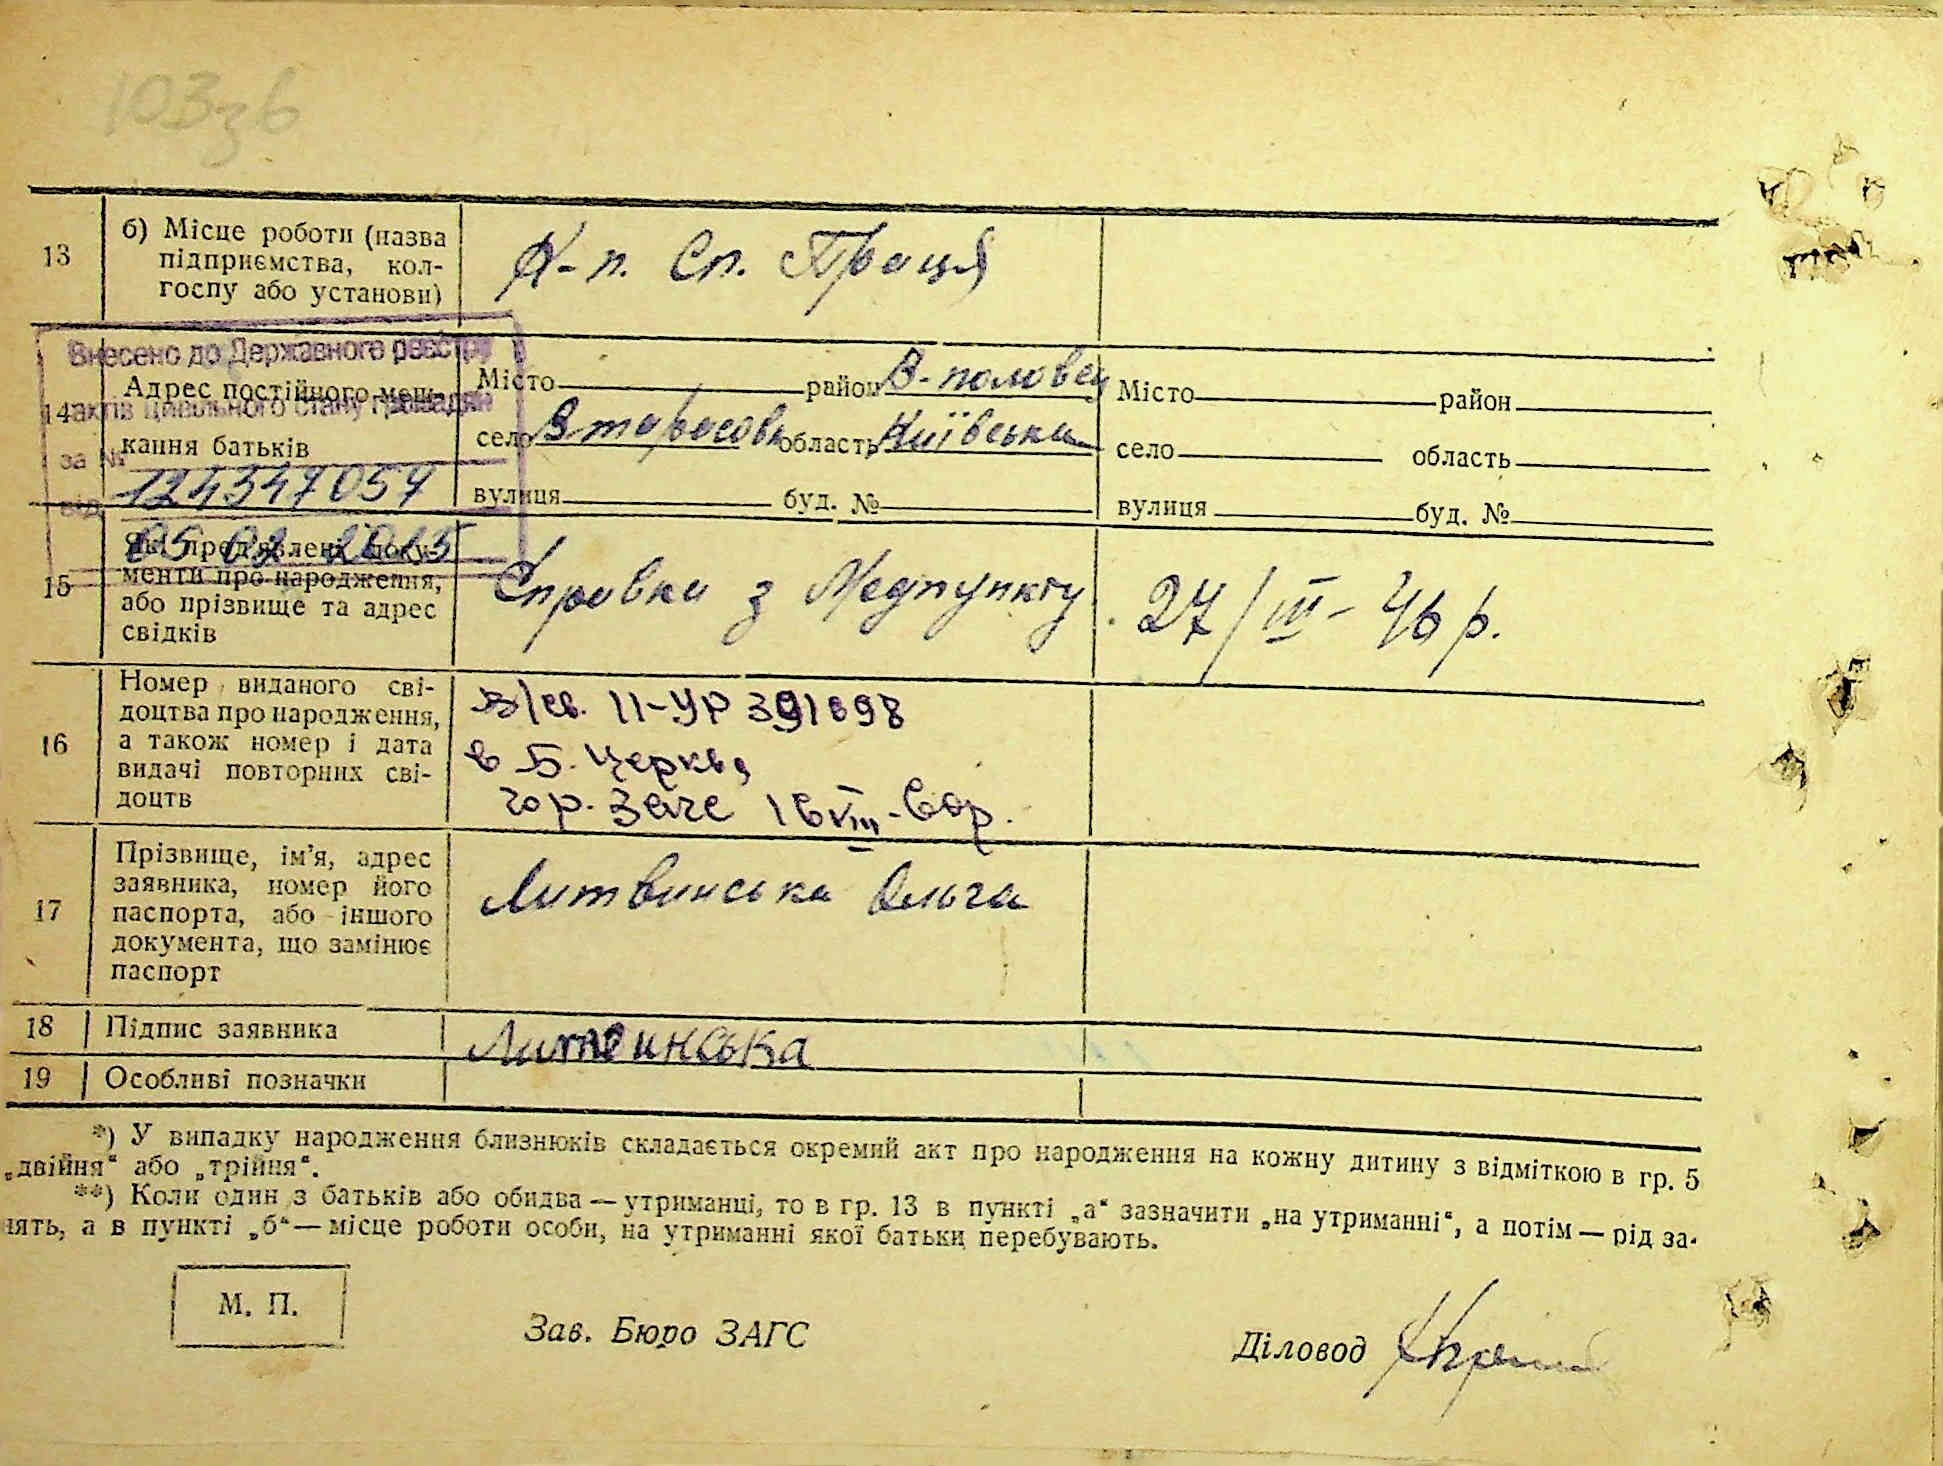 103зв
13 б) Місце роботи (назва підприємства, кол-госпу або установи) К-п. Сп. Праця
Внесено до Державного реєстру
актів цивільного стану громадян
за № 124347054
від 05.02.2015
14 Адрес постійного меш-
кання батьків
Місто район В-половец
село В тарасовк область Київська
вулиця буд. №
Місто район
село область
вулиця буд. №
15 Які пред'явлені доку-
менти про народження,
або прізвище та адрес
свідків
Справка з Медпункту 27/III-46 р.
16 Номер виданого сві-
доцтва про народження,
а також номер і дата
видачі повторних сві-
доцтв
II-УР 391698
в Б. Церкві
гор. Загс 16 VIII
17 Прізвище, ім'я, адрес
заявника, номер його
паспорта, або іншого
документа, що замінює
паспорт
Литвинська Ольга
18 Підпис заявника Литвинська
19 Особливі позначки
*) У випадку народження близнюків складається окремий акт про народження на кожну дитину з відміткою в гр. 5
„двійня“ або „трійня“.
**) Коли один з батьків або обидва — утриманці, то в гр. 13 в пункті „а“ зазначити „на утриманні“, а потім — рід за-
нять, а в пункті „б“ — місце роботи особи, на утриманні якої батьки перебувають.
М. П.
Зав. Бюро ЗАГС
Діловод